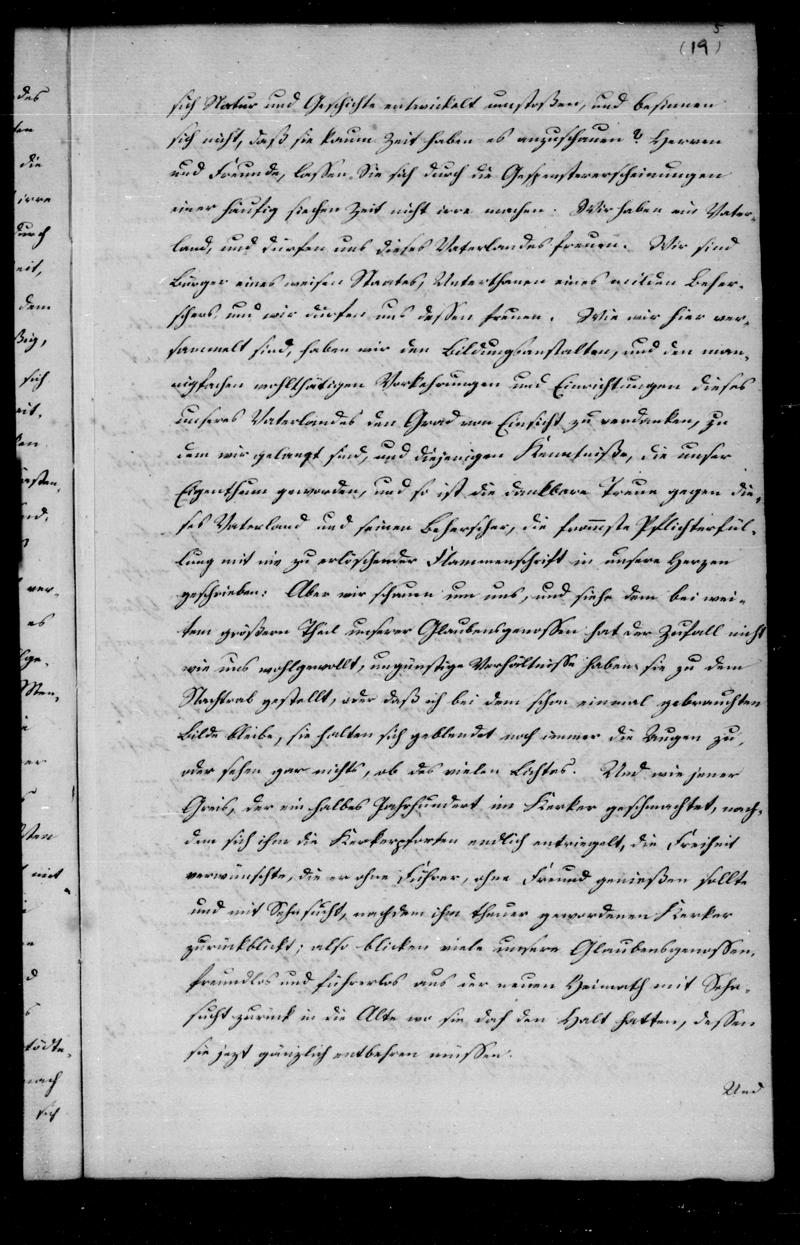 5
(19)
sich Natur und Geschichte entwickelt umstoßen, und besinnen
sich nicht, daß sie kaum Zeit haben es anzuschauen? Herren
und Freunde, lassen Sie sich durch die Gespenstererscheinungen
einer häufig siechen Zeit nicht irre machen. Wir haben ein Vater-
land, und dürfen uns dieses Vaterlandes freuen. Wir sind
Bürger eines weisen Staates, Unterthanen eines milden Beher-
schers und wir dürfen uns dessen freuen. Wie wir hier ver-
sammelt sind, haben wir den Bildungsanstalten, und den man-
nigfachen wohlthätigen Vorkehrungen und Einrichtungen dieses
unseres Vaterlandes den Grad von Einsicht zu verdanken, zu
dem wir gelangt sind, und diejenigen Kenntniße, die unser
Eigenthum geworden, und so ist die dankbare Treue gegen die-
ses Vaterland und seinen Beherscher, die from̄ste Pflichterfül-
lung mit nie zu erlöschender Flammenschrift in unsere Herzen
geschrieben: Aber wir schauen um uns, und siehe dem bei wei-
tem größern Theil unserer Glaubensgenossen hat der Zufall nicht
wie uns wohlgewollt, ungünstige Verhältnisse haben sie zu dem
Nachtrab gestellt, oder daß ich bei dem schon einmal gebrauchten
Bilde bleibe, sie halten sich geblendet noch immer die Augen zu,
oder sehen gar nichts, ob des vielen Lichtes. Und wie jener
Greis, der ein halbes Jahrhundert im Kerker geschmachtet, nach-
dem sich ihm die Kerkerpforten endlich entriegelt, die Freiheit
verwünschte, die er ohne Führer, ohne Freund genießen sollte
und mit Sehnsucht, nach dem ihm theuer gewordenen Kerker
zurückblickt; also blicken viele unsere Glaubensgenossen,
freundlos und führerlos aus der neuen Heimath mit Sehn-
sucht zurück in die Alte wo sie doch den Halt hatten, dessen
sie jezt gänzlich entbehren müssen.
Und